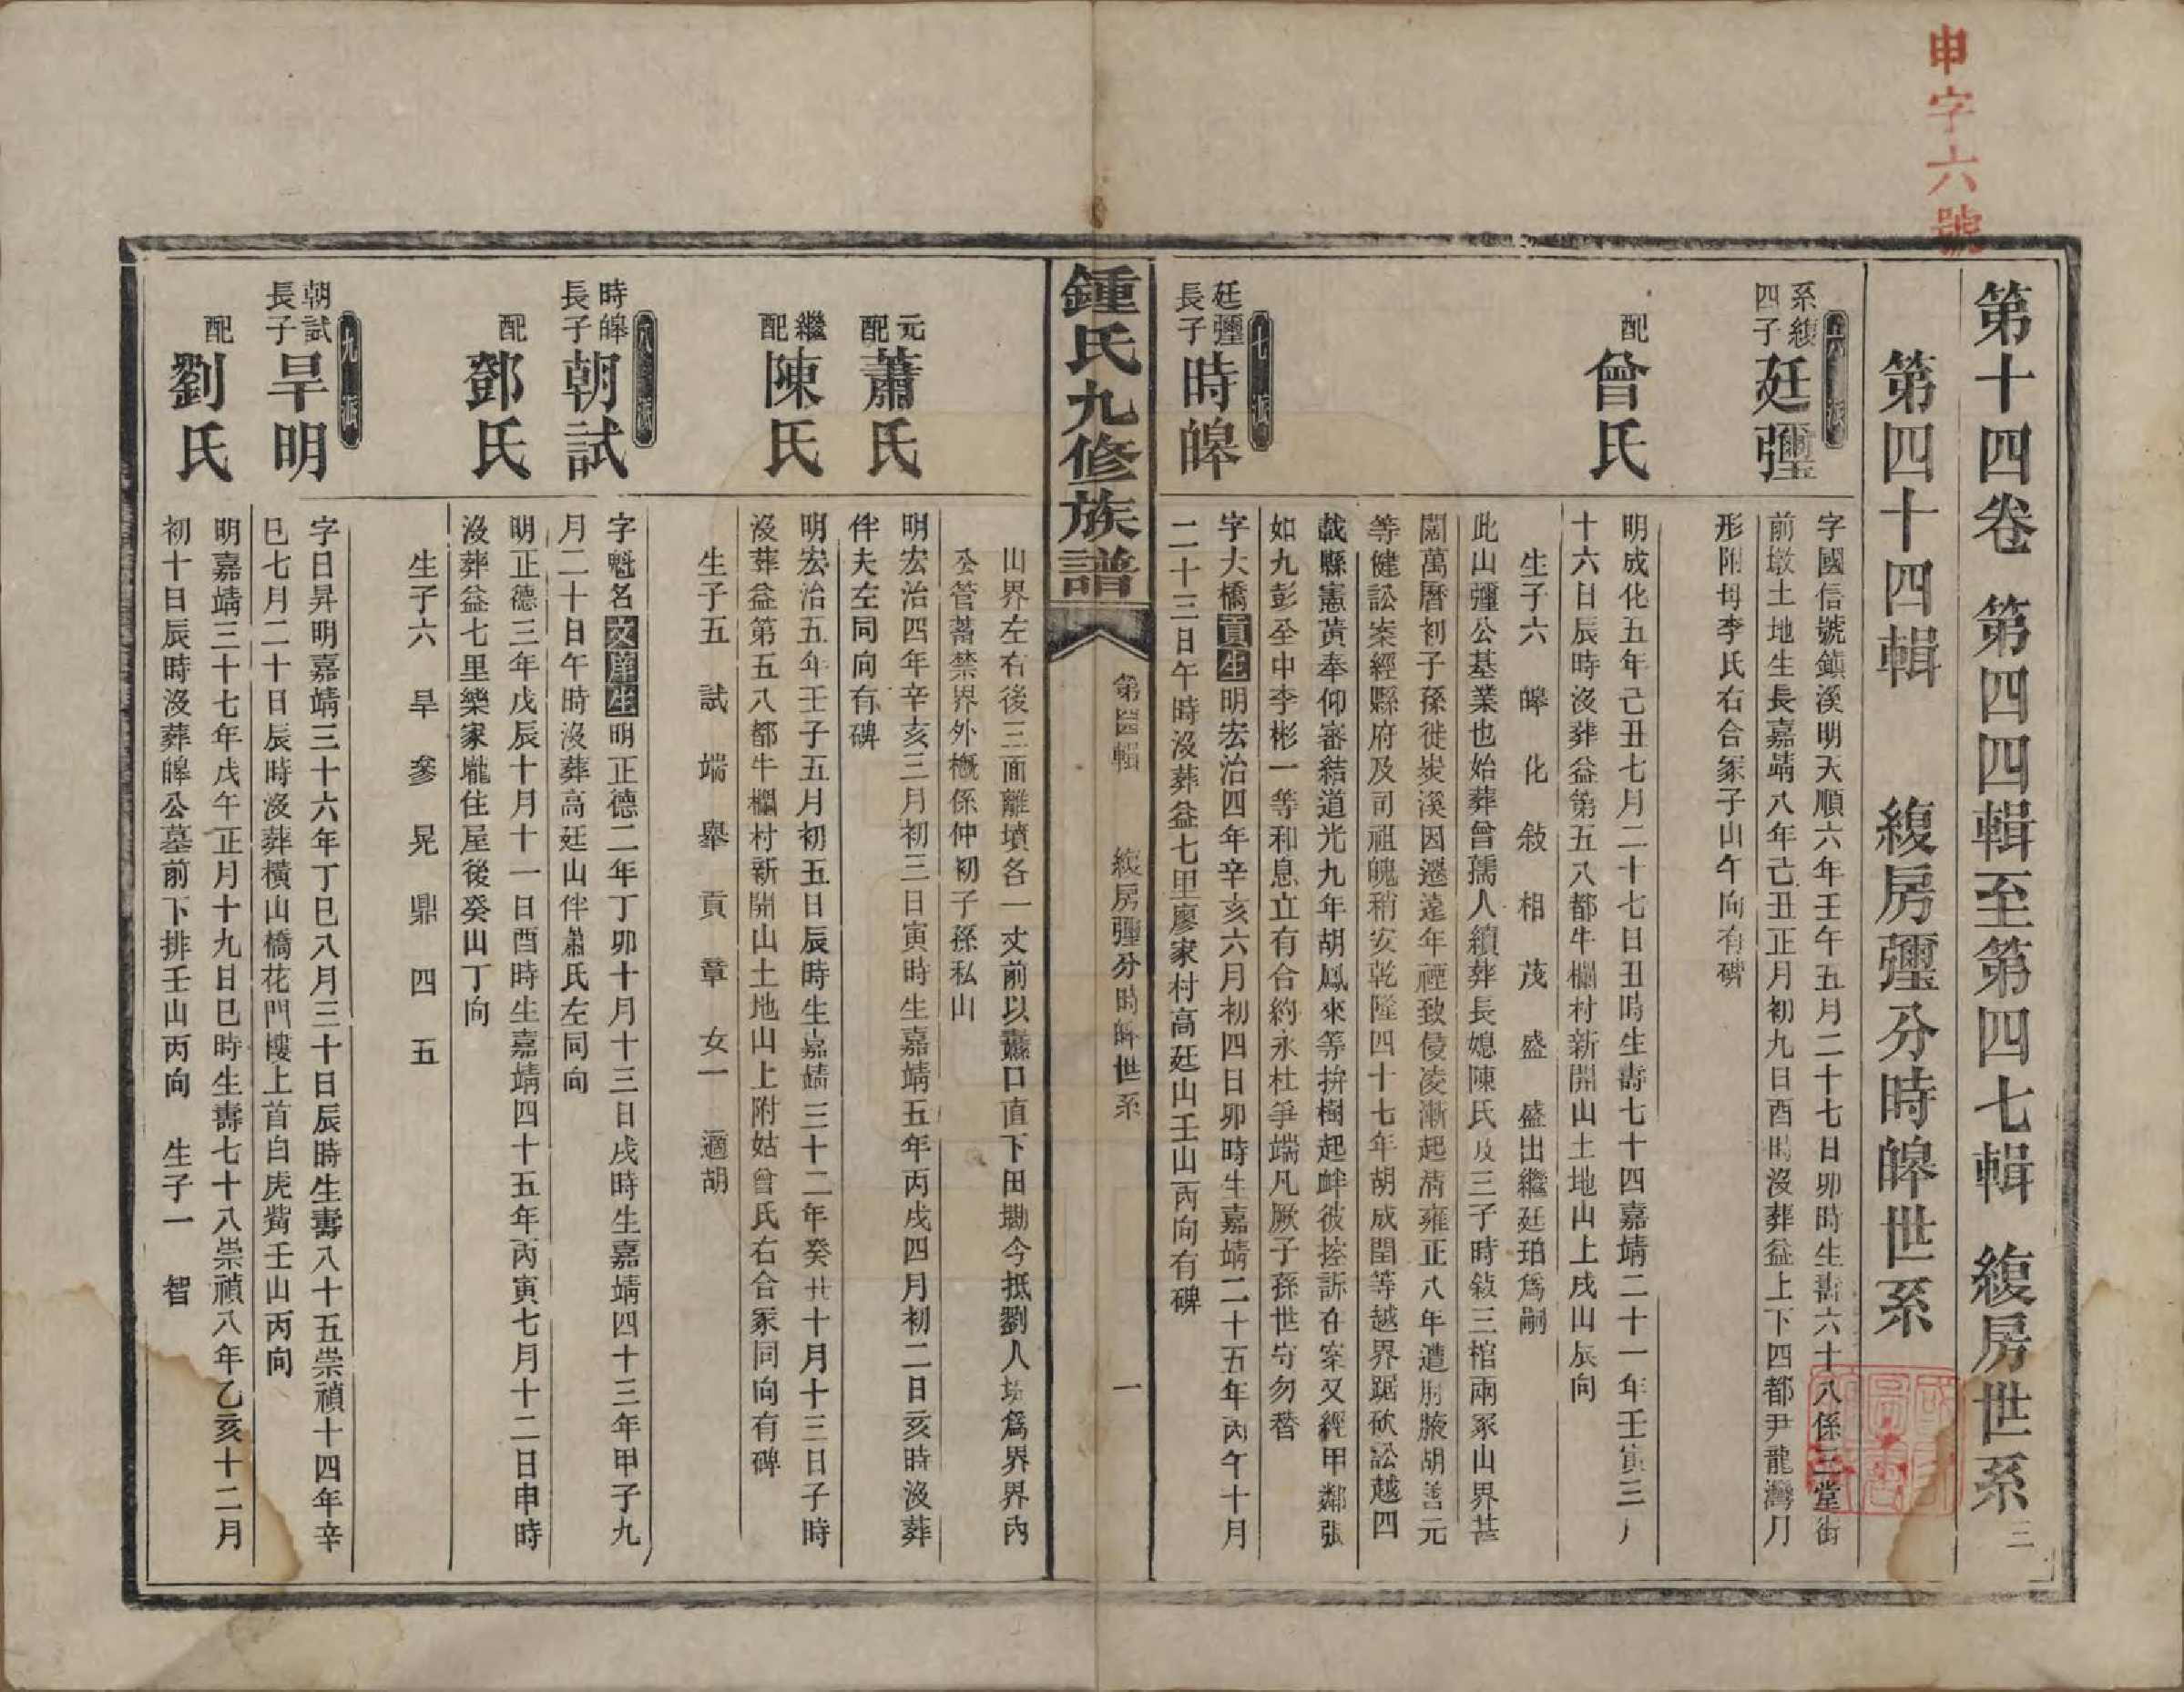 申字六號
第十四卷 第四四輯至第四七輯 緮房世系 三
第四十四輯 緮房彊分時皞世系
六派
系緮四子
廷彊
字國信號鎭溪明天順六年壬午五月二十七日卯時生壽六十八係三堂街
前墩土地生長嘉靖八年己丑正月初九日酉時沒葬益上下四都尹龍灣月
形附母李氏右合冢子山午向有碑
配
曾氏
明成化五年己丑七月二十七日丑時生壽七十四嘉靖二十一年壬寅三月
十六日辰時沒葬益第五八都牛欄村新開山土地山上戌山辰向
生子六 皞 化 敍 相 茂 盛 盛出繼廷珀爲嗣
此山彊公基業也始葬曾孺人續葬長媳陳氏及三子時敍三棺兩冢山界甚
闊萬曆初子孫徙炭溪因遷遠年禋致侵凌漸起淸雍正八年遭肘腋胡善元
等健訟案經縣府及司祖魄稍安乾隆四十七年胡成閏等越界踞砍訟越四
載縣憲黃奉仰審結道光九年胡鳳來等拚樹起衅彼控訴在案又經甲鄰張
如九彭至中李彬一等和息立有合約永杜爭端凡厥子孫世守勿替
七派
廷彊長子
時皞
字大橋貢生明宏治四年辛亥六月初四日卯時生嘉靖二十五年丙午十月
二十三日午時沒葬益七里廖家村高廷山壬山丙向有碑
鍾氏九修族譜
第四四輯 緮房彊分時皞世系 一
山界左右後三面離墳各一丈前以囊口直下田墈今抵劉人坟爲界界內
公管蓄禁界外概係仲初子孫私山
元配
蕭氏
明宏治四年辛亥三月初三日寅時生嘉靖五年丙戌四月初二日亥時沒葬
伴夫左同向有碑
繼配
陳氏
明宏治五年壬子五月初五日辰時生嘉靖三十二年癸丑十月十三日子時
沒葬益第五八都牛欄村新開山土地山上附姑曾氏右合冢同向有碑
生子五 試 端 舉 貢 章 女一 適胡
八派
時皞長子
朝試
字魁名文庠生明正德二年丁卯十月十三日戌時生嘉靖四十三年甲子九
月二十日午時沒葬高廷山伴蕭氏左同向
配
鄧氏
明正德三年戊辰十月十一日酉時生嘉靖四十五年丙寅七月十二日申時
沒葬益七里樂家壠住屋後癸山丁向
生子六 旱 參 晃 鼎 四 五
九派
朝試長子
旱明
字日昇明嘉靖三十六年丁巳八月三十日辰時生壽八十五崇禎十四年辛
巳七月二十日辰時沒葬橫山橋花門樓上首白虎嘴壬山丙向
配
劉氏
明嘉靖三十七年戊午正月十九日巳時生壽七十八崇禎八年乙亥十二月
初十日辰時沒葬皞公墓前下排壬山丙向 生子一 智